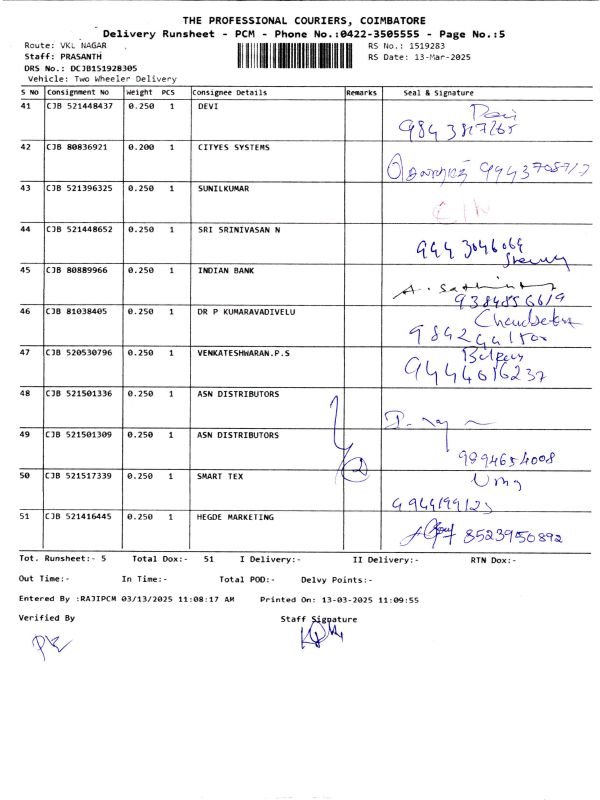 THE PROFESSIONAL COURIERS, COIMBATORE
Delivery Runsheet - PCM - Phone No.:0422-3505555 - Page No.:5
Route: VKL NAGAR RS No.: 1519283
Staff: PRASANTH RS Date: 13-Mar-2025
DRS No.: DCJB151928305
Vehicle: Two Wheeler Delivery
S No Consignment No Weight PCS Consignee Details Remarks Seal & Signature
41 CJB 521448437 0.250 1 DEVI
42 CJB 80836921 0.200 1 CITYES SYSTEMS
43 CJB 521396325 0.250 1 SUNILKUMAR
44 CJB 521448652 0.250 1 SRI SRINIVASAN N
9443046069
45 CJB 80889966 0.250 1 INDIAN BANK
9384856619
46 CJB 81038405 0.250 1 DR P KUMARAVADIVELU
47 CJB 520530796 0.250 1 VENKATESHWARAN.P.S
9444016237
48 CJB 521501336 0.250 1 ASN DISTRIBUTORS
49 CJB 521501309 0.250 1 ASN DISTRIBUTORS
9894654008
50 CJB 521517339 0.250 1 SMART TEX
51 CJB 521416445 0.250 1 HEGDE MARKETING
8523950892
Tot. Runsheet:- 5 Total Dox:- 51 I Delivery:- II Delivery:- RTN Dox:-
Out Time:- In Time:- Total POD:- Delvy Points:-
Entered By :RAJIPCM 03/13/2025 11:08:17 AM Printed On: 13-03-2025 11:09:55
Verified By Staff Signature